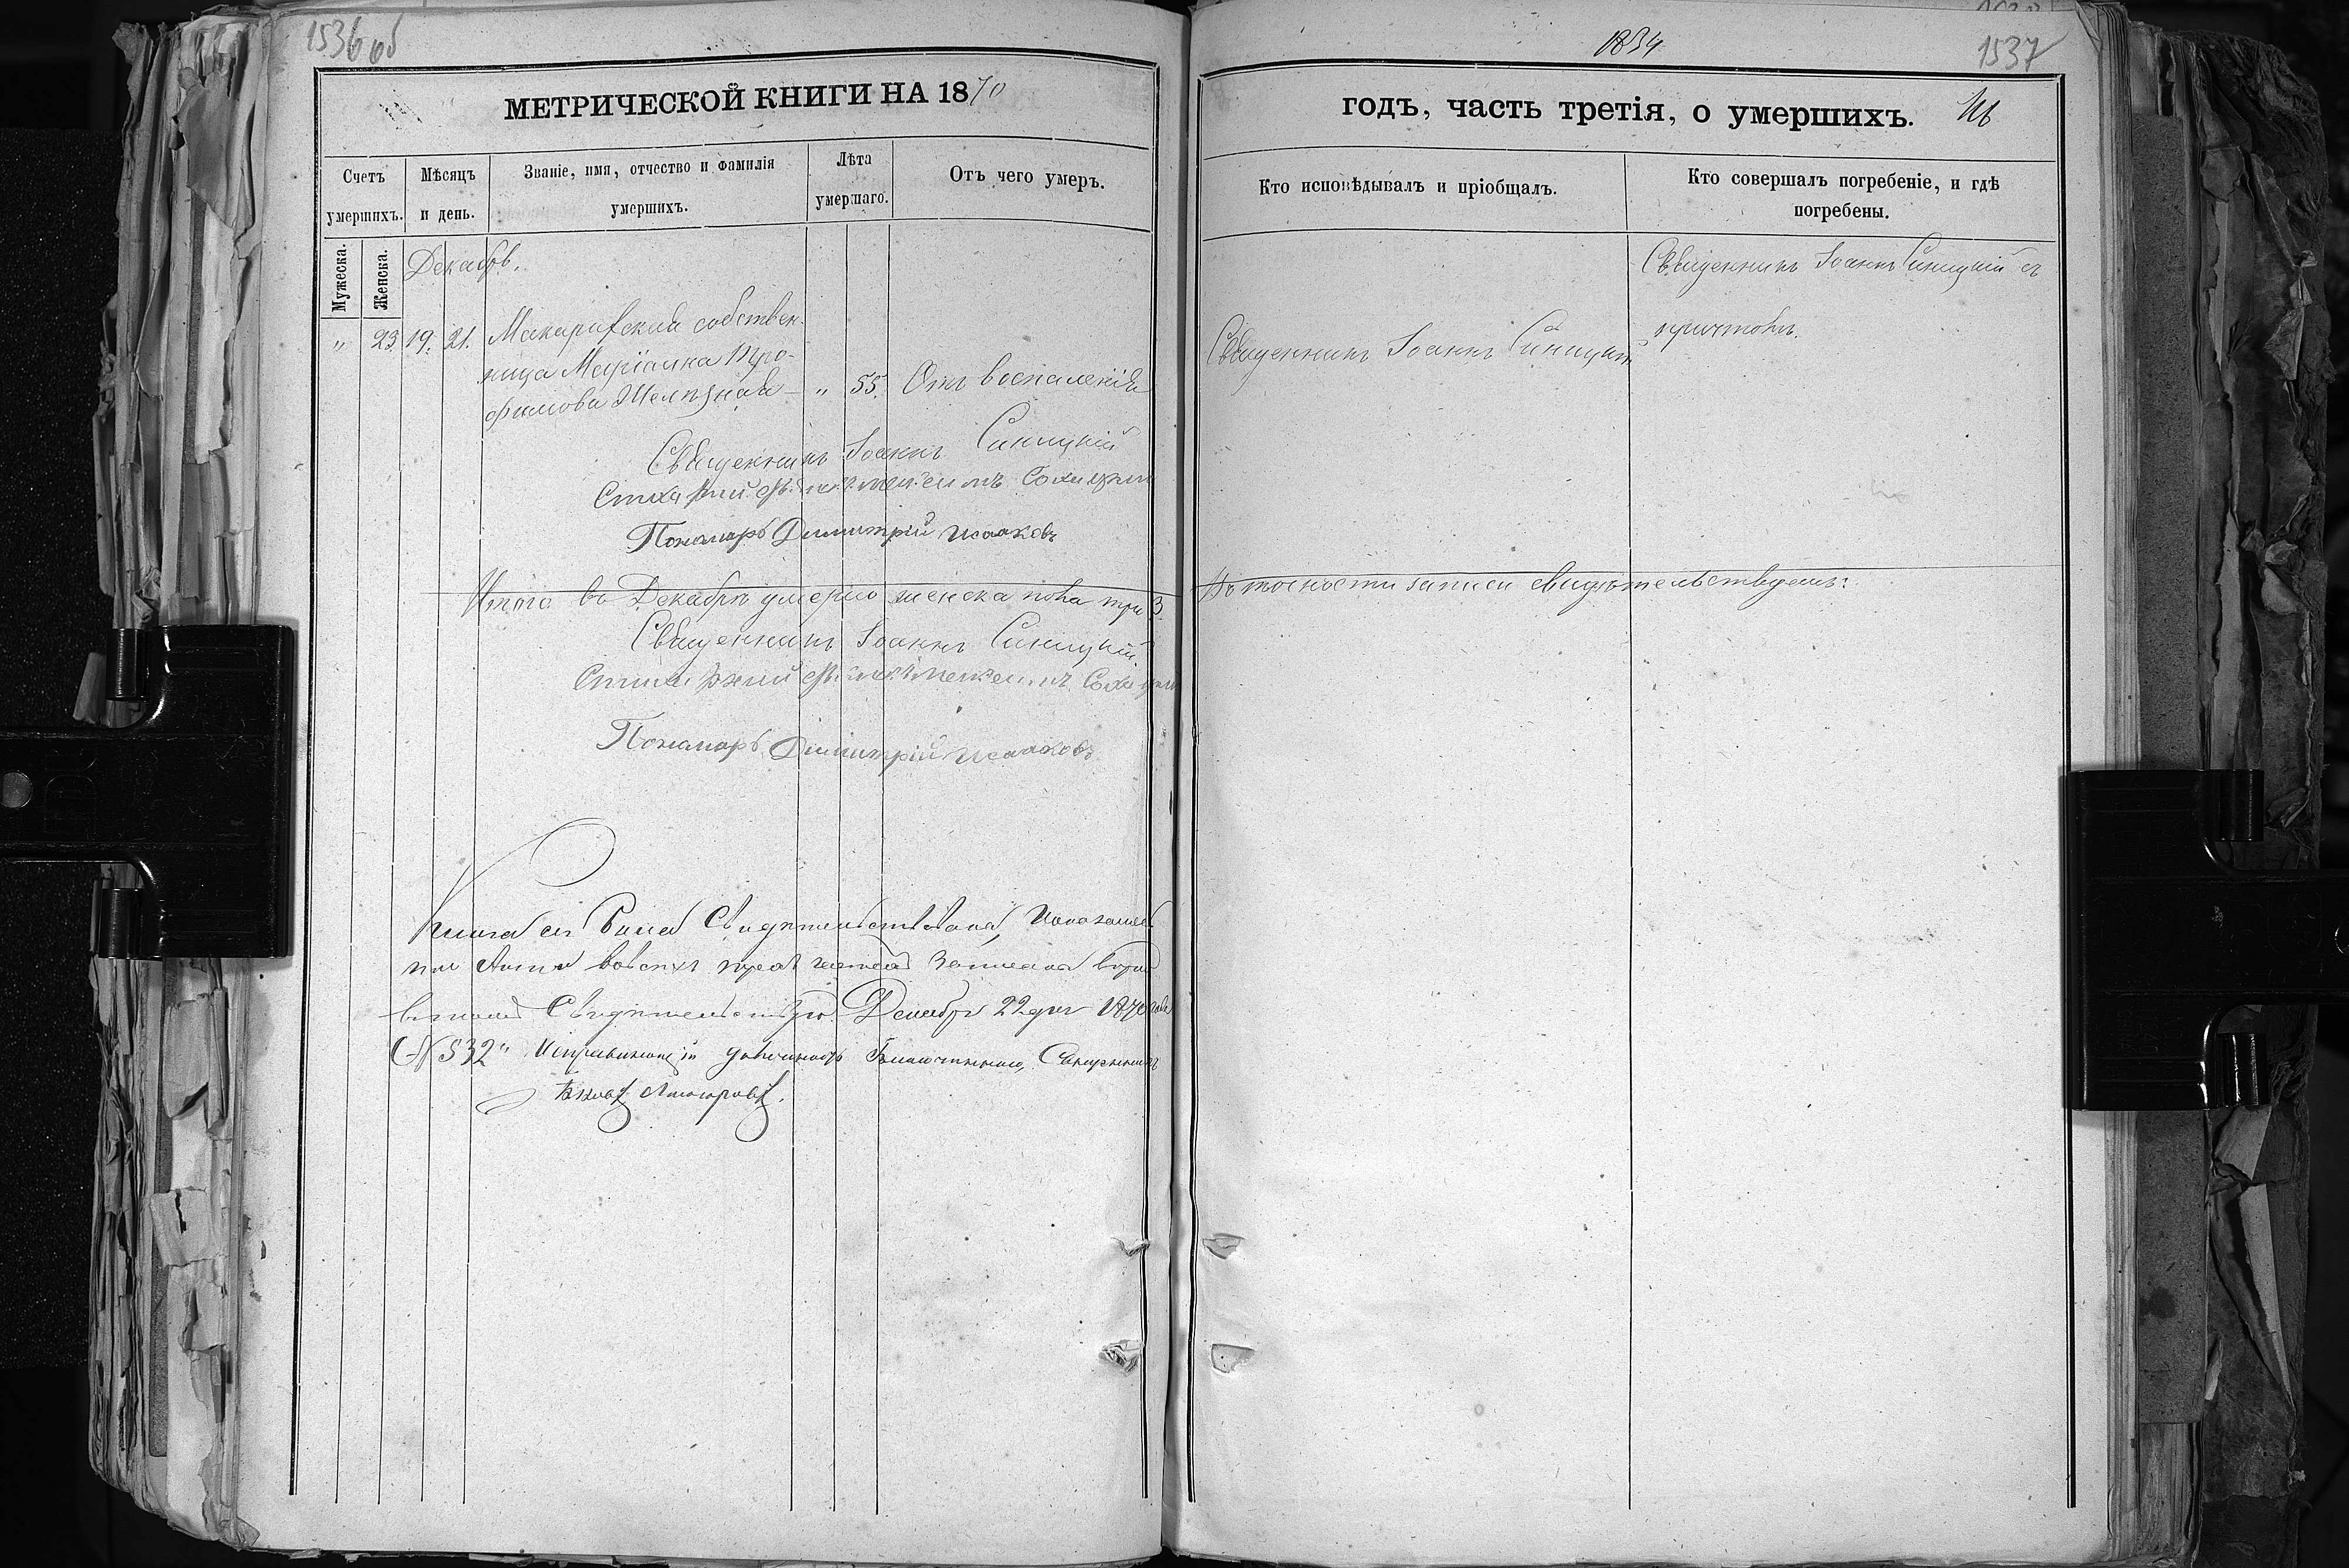 1536 об
МЕТРИЧЕСКОЙ КНИГИ НА 1870
Счетъ умершихъ.
Мужеска.
Женска.
Мѣсяцъ и день.
Званіе, имя, отчество и фамилія умершихъ.
Лѣта умершаго.
Отъ чего умеръ.
Декабрь.
" 23 19. 21. Макаривская собствен-
ница Маріамна Тро-
фимова Желѣзная — " 55. Отъ воспаленія
Священникъ Іоаннъ Синицкій
Пономарь Димитрій Исааковъ
Итого въ Декабрѣ умерло женска пола три 3.
Священникъ Іоаннъ Синицкій.
Пономарь Димитрій Исааковъ
Книга сія была Свидѣтельствована,
во всѣхъ трехъ частяхъ
Свидѣтельствую. Декабря 22 дня 1870 года
№ 532" Исправляющій должность Благочиннаго, Священникъ
1834
1537
годъ, часть третія, о умершихъ.
Кто исповѣдывалъ и пріобщалъ.
Кто совершалъ погребеніе, и гдѣ погребены.
Священникъ Іоаннъ Синицкій съ
причтомъ.
Священникъ Іоаннъ Синицкій
Въ точности записи свидѣтельствуемъ: